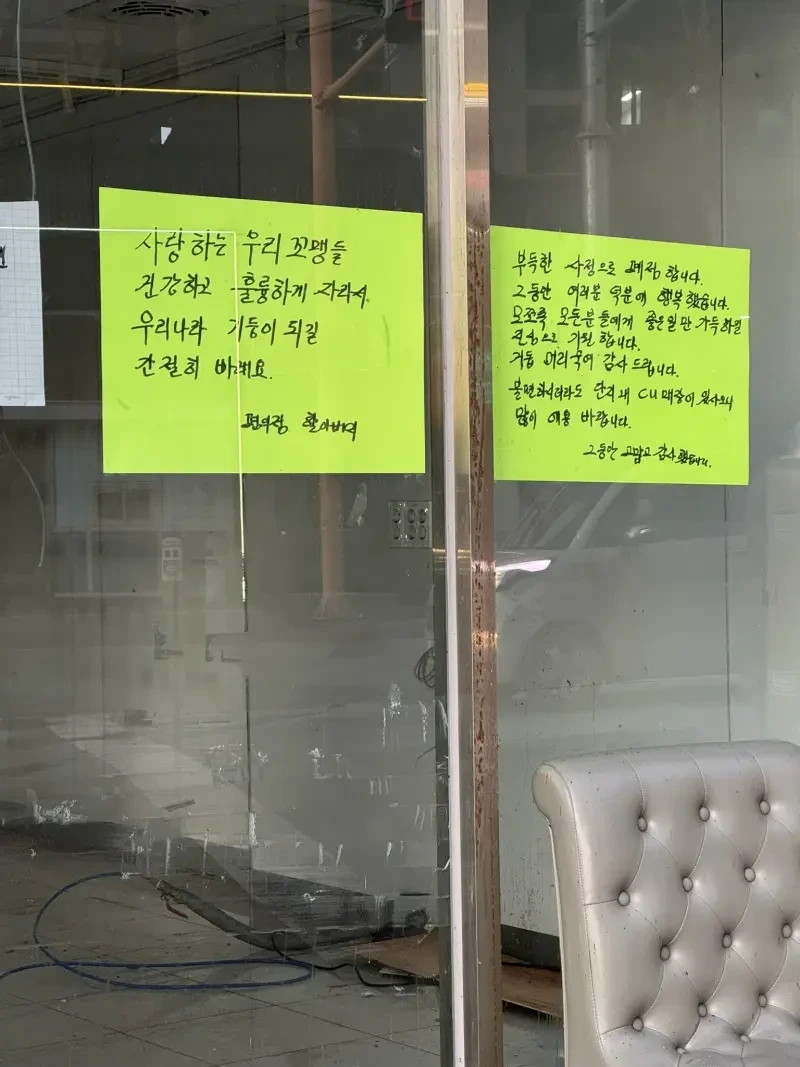 사랑하는 우리 꼬맹들
건강하고 훌륭하게 자라서
우리나라 기둥이 되길
간절히 바래요.
편의점 할아버지
부득한 사정으로 폐점 합니다.
그동안 여러분 덕분에 행복했습니다.
모쪼록 모든분들에게 좋은일만 가득하길
진심으로 기원 합니다.
거듭 머리숙여 감사 드립니다.
불편하시더라도 단지내 CU 매장이 있사오니
많이 애용 바랍니다.
그동안 고맙고 감사했습니다.